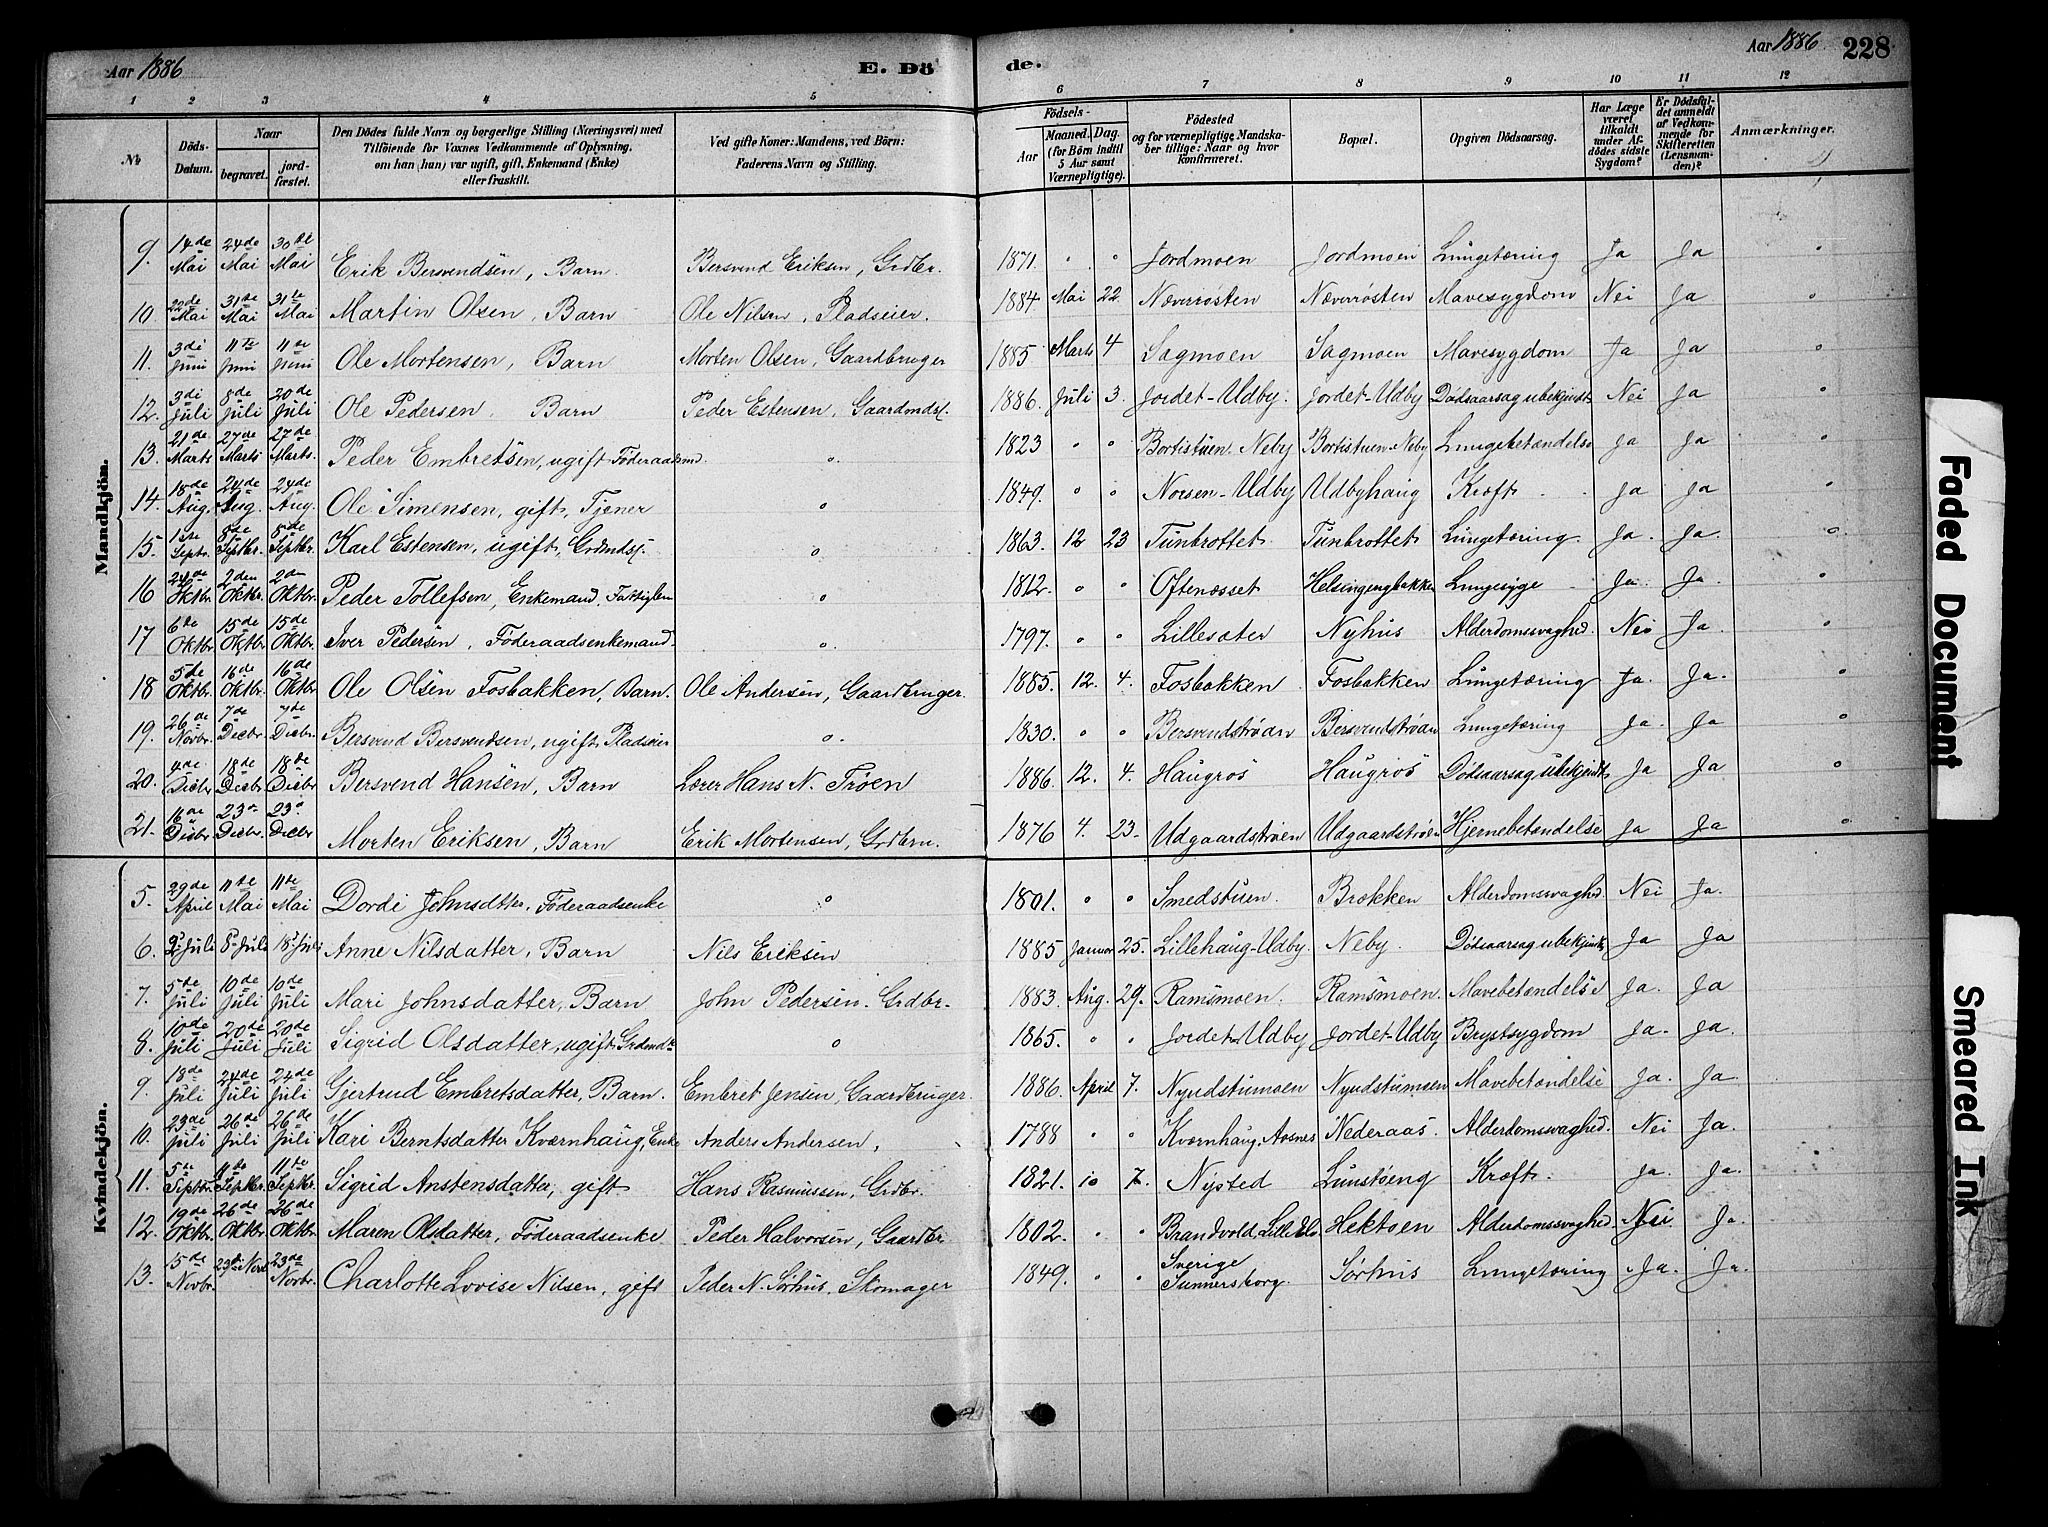 Aar 1886 E. Dö
de. Aar 1886 228
1 2 3 4 5 6 7 8 9 10 11 12
No Döds-Datum. Naar begravet. jord-fæstet. Den Dödes fulde Navn og borgerlige Stilling (Næringsvei) med Tilföiende for Voxnes Vedkommende af Oplysning, om han (hun) var ugift, gift, Enkemand (Enke) eller fraskilt. Ved gifte Koner: Mandens, ved Börn: Faderens Navn og Stilling. Födsels- Aar Maaned. Dag. (for Börn indtil 5 Aar samt Værnepligtige). Födested og for værnepligtige Mandska-ber tillige: Naar og hvor konfirmeret. Bopæl. Opgiven Dödsaarsag. Har Læge været tilkaldt under Af-dödes sidste Sygdom? Er Dödsfal-det anmeldt af Vedkom-mende for Skifteretten (Lensman-den)? Anmærkninger.
Mandkjön.
9. 14de Mai 24de Mai 30te Mai Erik Bersvendsen, Barn. Bersvend Eriksen, Grdbr. 1871. " " Jordmoen Jordmoen Lungetæring Ja Ja "
10. 22de Mai 31te Mai 31te Mai Martin Olsen, Barn Ole Nilsen, Pladseier. 1884 Mai 22. Næverrösten Næverrösten Mavesygdom Nei Ja "
11. 3di Juni 11te Juni 11te Juni Ole Mortensen, Barn Morten Olsen, Gaardbruger 1885 Marts 4 Sagmoen Sagmoen Mavesygdom Ja Ja "
12. 3di Juli 8de Juli 20de Juli Ole Pedersen. Barn Peder Estensen, Gaardmds. 1886. Juli 3. Jordet-Udby. Jordet-Udby Dödsaarsag ubekjendt Nei Ja "
13. 21de Marts 27de Marts 27de Marts. Peder Embretsen, ugift Föderaadsmd. " 1823 " " Bortistuen Neby Bortistuen Neby Lungebetændelse Ja Ja "
14. 18de Aug. 24de Aug. 24de Aug. Ole Simensen, gift, Tjener " 1849. " " Norsen-Udby Udbyhaug Kræft. Ja Ja "
15. 1ste Septr. 8de Septbr. 8de Septbr. Karl Estensen, ugift, Grdmds. " 1863. 12 23 Tunbrottet Tunbrottet Lungetæring. Ja. Ja. "
16 24de Oktbr. 2den Oktbr. 2den Oktbr. Peder Tollefsen, Enkemand, Fattiglem " 1812. " " Oftenæsset Helsingengbakken Lungesyge Ja. Ja. "
17 6te Oktbr. 15de Oktbr. 15de Oktbr. Iver Pedersen, Föderaadsenkemand. " 1797. " " Lillesæter Nyhus Alderdomssvaghed. Nei Ja. "
18 5te Oktbr. 16de Oktbr. 16de Oktbr. Ole Olsen Fosbakken, Barn. Ole Andersen, Gaardbruger. 1885. 12. 4. Fosbakken Fosbakken Lungetæring Ja. Ja. "
19. 26de Novbr. 7de Decbr. 7de Decbr. Bersvend Bersvendsen, ugift Pladseier " 1830. " " Bersvendströen Bersvendströen Lungetæring Ja. Ja "
20. 4de Decbr 18de Decbr 18de Decbr Bersvend Hansen, Barn Lærer Hans N. Tröen 1886 12. 4. Haugros Haugros Dödsaarsag ubekjendt Ja Ja "
21. 16de Decbr. 23de Decbr. 23de Decbr Morten Eriksen, Barn Erik Mortensen, Grdbru. 1876 4. 23. Udgaardströen Udgaardströen Hjernebetændelse Ja Ja "
Kvindekjön.
5. 29de April 11te Mai 11te Mai Dordi Johnsdtter. Föderaadsenke " 1801. " " Smedstuen. Brækken Alderdomssvaghed. Nei Ja.
6. 2. Juli 8. Juli 18. Juli Anne Nilsdatter, Barn Nils Eriksen 1885 Januar 25. Lillehaug-Udby. Neby. Dödsaarsag ubekjendt Ja Ja
7. 5te Juli 10de Juli 10de Juli Mari Johnsdatter, Barn John Pedersen. Grdbr. 1883. Aug. 29. Ramsmoen. Ramsmoen. Mavebetændelse Ja. Ja
8. 10de Juli 20de Juli 20de Juli Sigrid Olsdatter, ugift, Grdmdtr " 1865. " " Jordet-Udby Jordet-Udby Brystsygdom Ja. Ja.
9. 18de Juli 24de Juli 24de Juli Gjertrud Embretsdatter, Barn. Embret Jensen, Gaardbruger. 1886. April 7. Nyudstumoen Nyudstumoen Mavebetændelse Ja. Ja.
10. 23de Juli 26de Juli 26de Juli Kari Berntsdatter Kværnhaug, Enke Anders Andersen, 1788 " " Kværnhaug, Aasnes Nederaas. Alderdomssvaghed. Nei Ja.
11. 5te Septbr. 11te Septbr. 11te Septbr. Sigrid Anstensdatter, gift Hans Rasmussen, Grdbr. 1821. 10 7. Nysted Lunstöeng Kræft. Ja. Ja.
12. 19de Oktbr 26de Oktbr 26de Oktbr. Maren Olsdatter, Föderaadsenke Peder Halvorsen, Gaardbr. 1802. " " Brandvold Lille Elv. Hektoen Alderdomssvaghed. Nei Ja.
13. 15de Novbr. 23de Novb. 23de Novbr. Charlotte Lovise Nilsen, gift Peder N. Sörhus, Skomager 1849. " " Sverige Sunnersborg. Sörhus Lungetæring Ja. Ja.
Faded Document
Smeared Ink